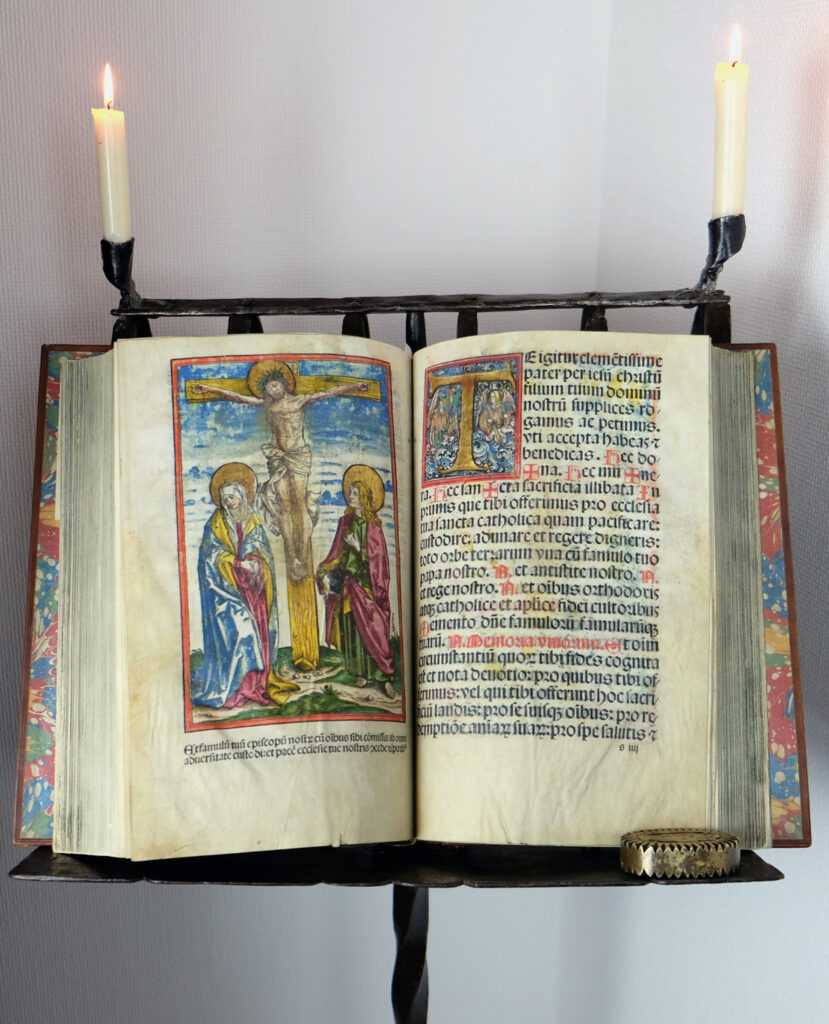 Et famulū tuū episcopū nostrꝝ cū oībus sibi cōmissis ab omni
aduersitate custodi: et pacē ecclesie tue nostris
T
E igitur clemētissime
pater per iesū christū
filium tuum dominū
nostrū supplices ro-
gamus ac petimus.
vti accepta habeas ⁊
benedicas. Hec do-
✠na. Hec mu✠ne-
ra. Hec san✠cta sacrificia illibata In
primis que tibi offerimus pro ecclesia
tua sancta catholica quam pacificare:
custodire: adunare et regere digneris:
toto orbe terrarum vna cū famulo tuo
papa nostro. N. et antistite nostro. N.
et rege nostro. N. et oībus orthodoxis
atqꝫ catholice et aplice fidei cultoribus
Memento dn̄e famulorū famularūqꝫ
tuarū. N. Memoria viuorum. Et oīm
circumstantiū quoꝝ tibi fides cognita
est et nota deuotio: pro quibus tibi of-
ferimus: vel qui tibi offerunt hoc sacri-
ficiū laudis: pro se suisqꝫ oībus: pro re-
demptiōe aniaꝝ suaꝝ: pro spe salutis ⁊
s iiij